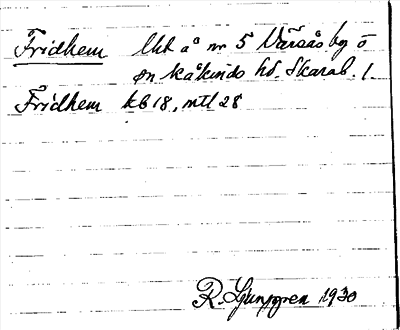 Fridhem lht å nr 5 Varsås by ö
sn Kåkinds hd. Skarab. l.
Fridhem kb 18, mtl 28
R. Ljunggren 1930